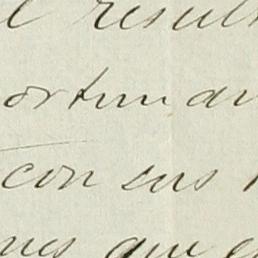 l result
ortunam
con sus
nes que e